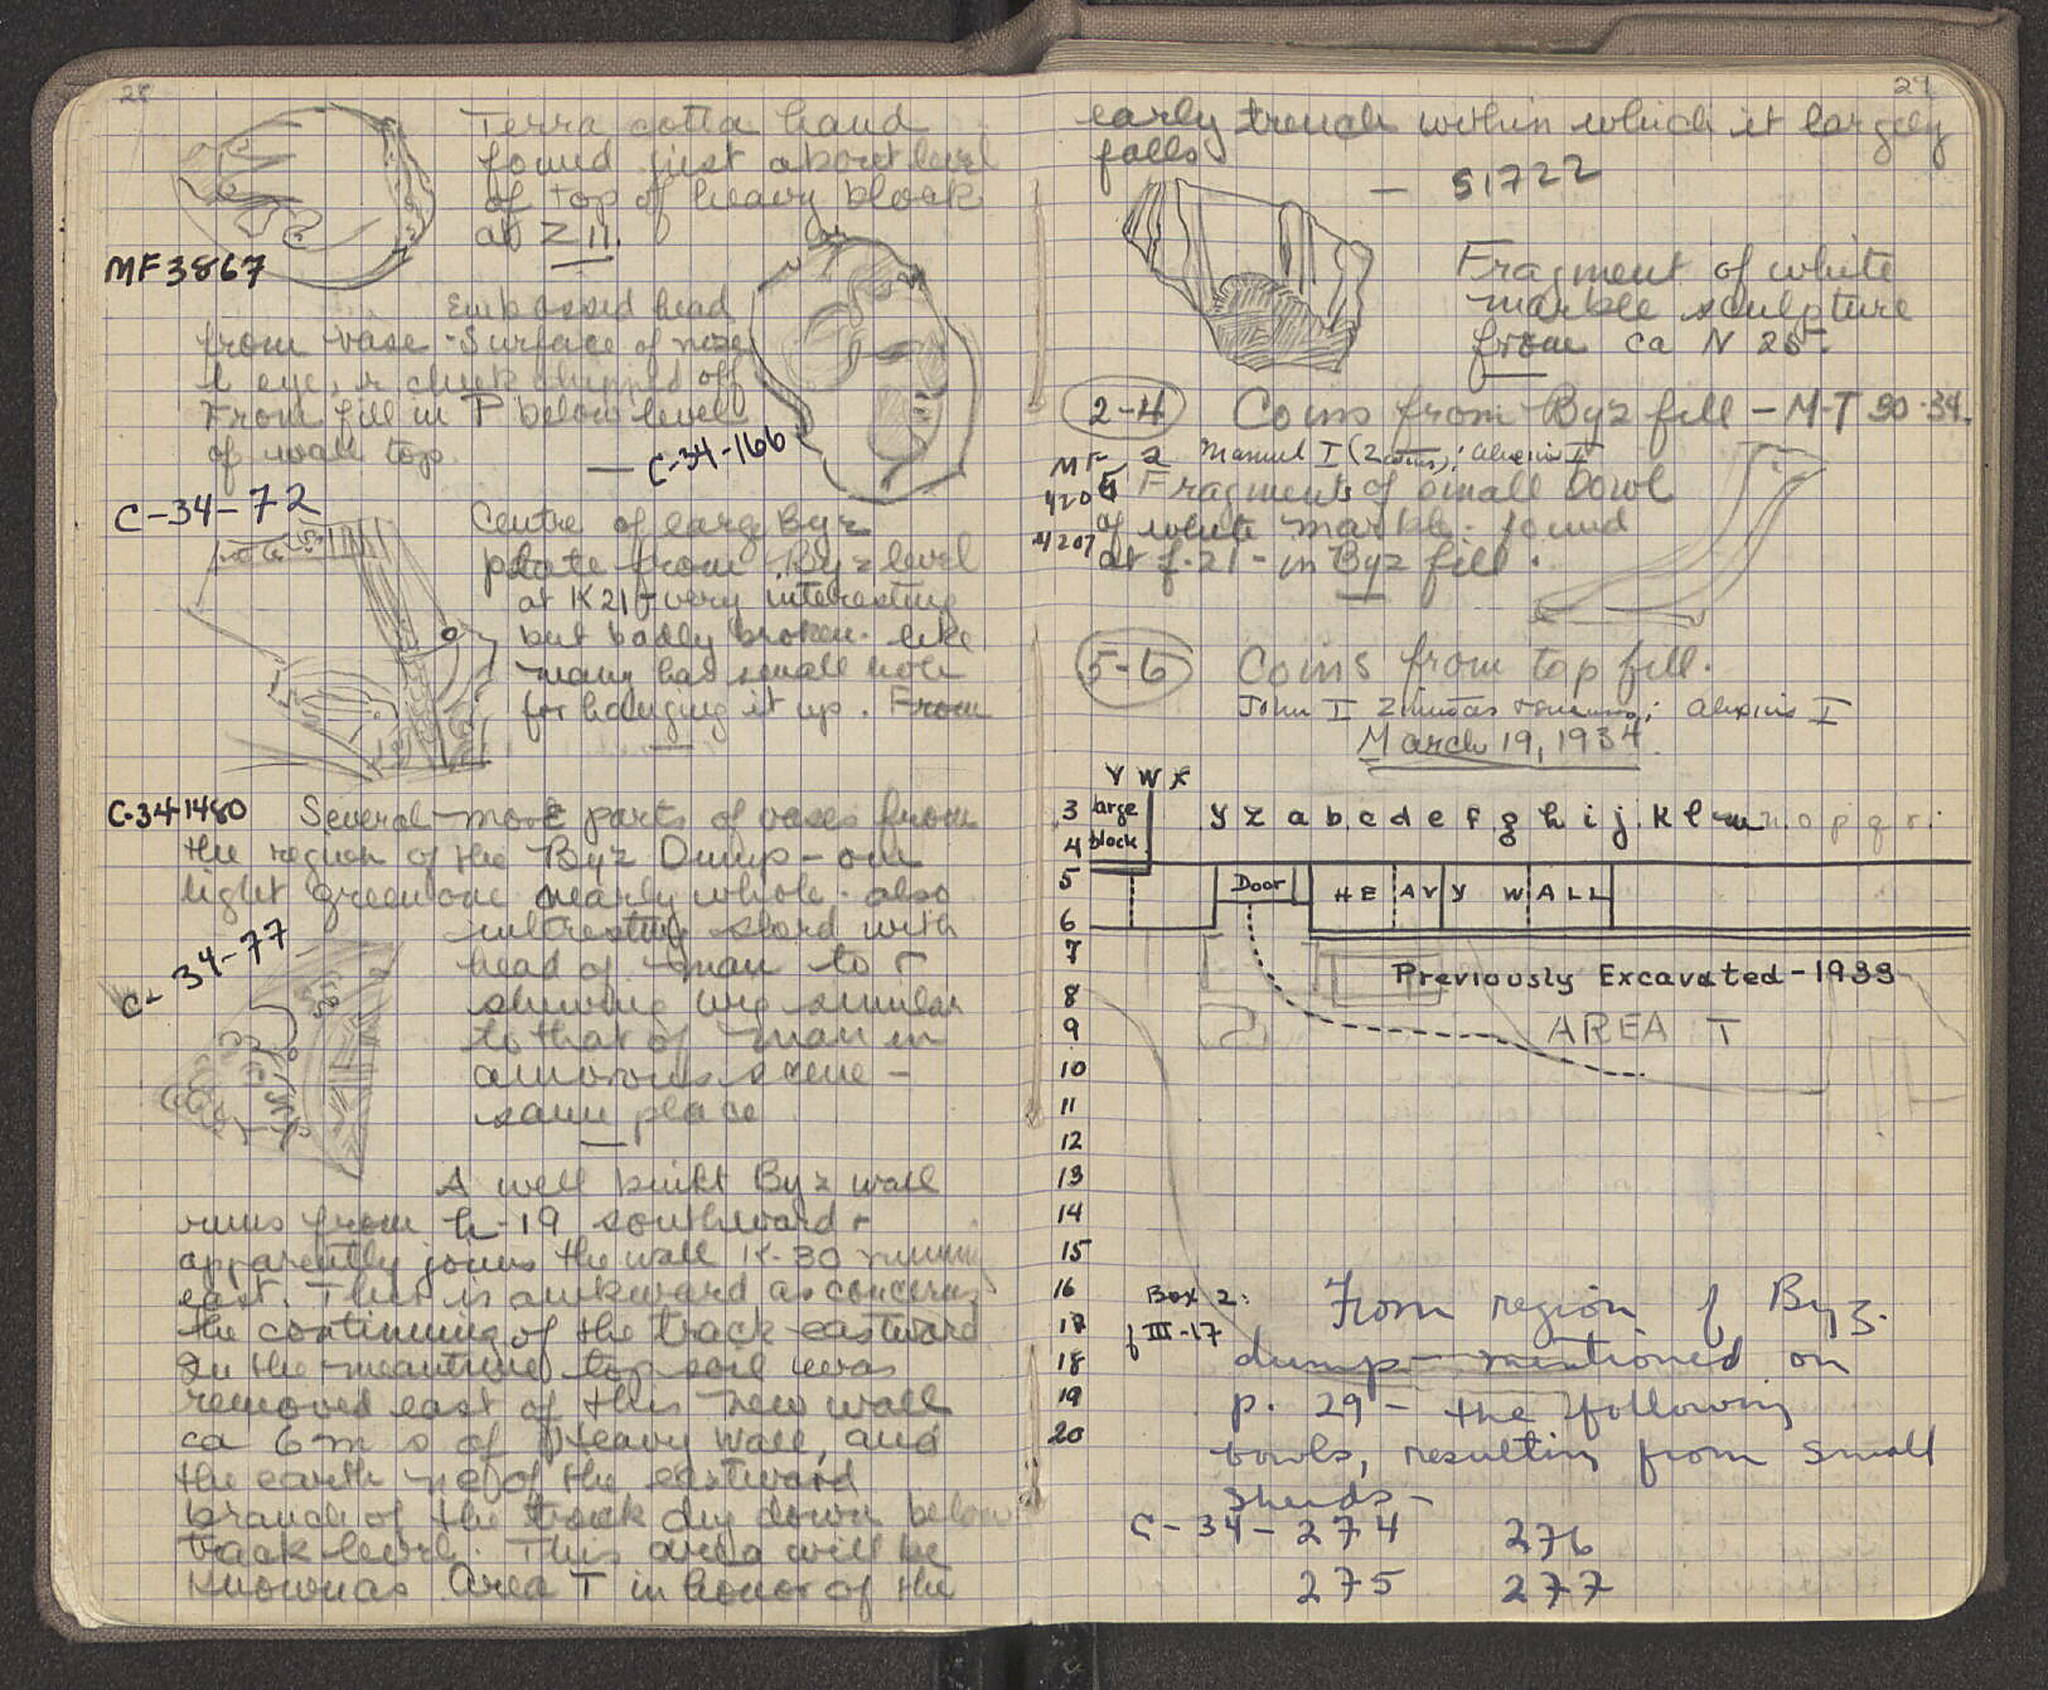 28
Terra cotta hand
found just about level
of top of heavy block
at Z 11.
MF 3867
Embossed head
from vase - Surface of nose
l eye, r cheek chipped off
From fill in P below level
of wall top.
— C-34-166
C-34-72
Centre of large Byz
plate from Byz level
at K21 - very interesting
but badly broken. like
many has small hole
for hanging it up. From
C-34-1480
Several more parts of vases from
the region of the Byz Dump - one
light green one nearly whole. also
interesting sherd with
head of man to r
showing wig similar
to that of man in
amorous scene -
same place
C-34-77
A well built Byz wall
runs from h-19 southward +
apparently joins the wall K-30 running
east. This is awkward as concerns
the continuing of the track eastward
In the meantime top soil was
removed east of this new wall
ca 6 m s of Heavy Wall, and
the earth ne of the eastward
branch of the track dug down below
track level. This area will be
known as Area T in honor of the
29
early trench within which it largely
falls
— S1722
Fragment of white
marble sculpture
from ca N 25.
2-4 Coins from Byz fill - M-T 30-34.
Manuel I (2 coins); Alexius I
MF 2 Fragments of small bowl
4206 of white marble. found
4207 at f.21 - in Byz fill.
5-6 Coins from top fill.
John I Zimisces; Alexius I
March 19, 1934.
V W X
y z a b c d e f g h i j k l m n o p q r
3 large
4 block
5 Door HEAVY WALL
6
7 Previously Excavated - 1933
8
9 AREA T
10
11
12
13
14
15
16
17
18
19
20
Box 2:
f III-17
From region of Byz.
dump mentioned on
p. 29 - the following
bowls, resulting from small
sherds -
C-34-274 276
275 277